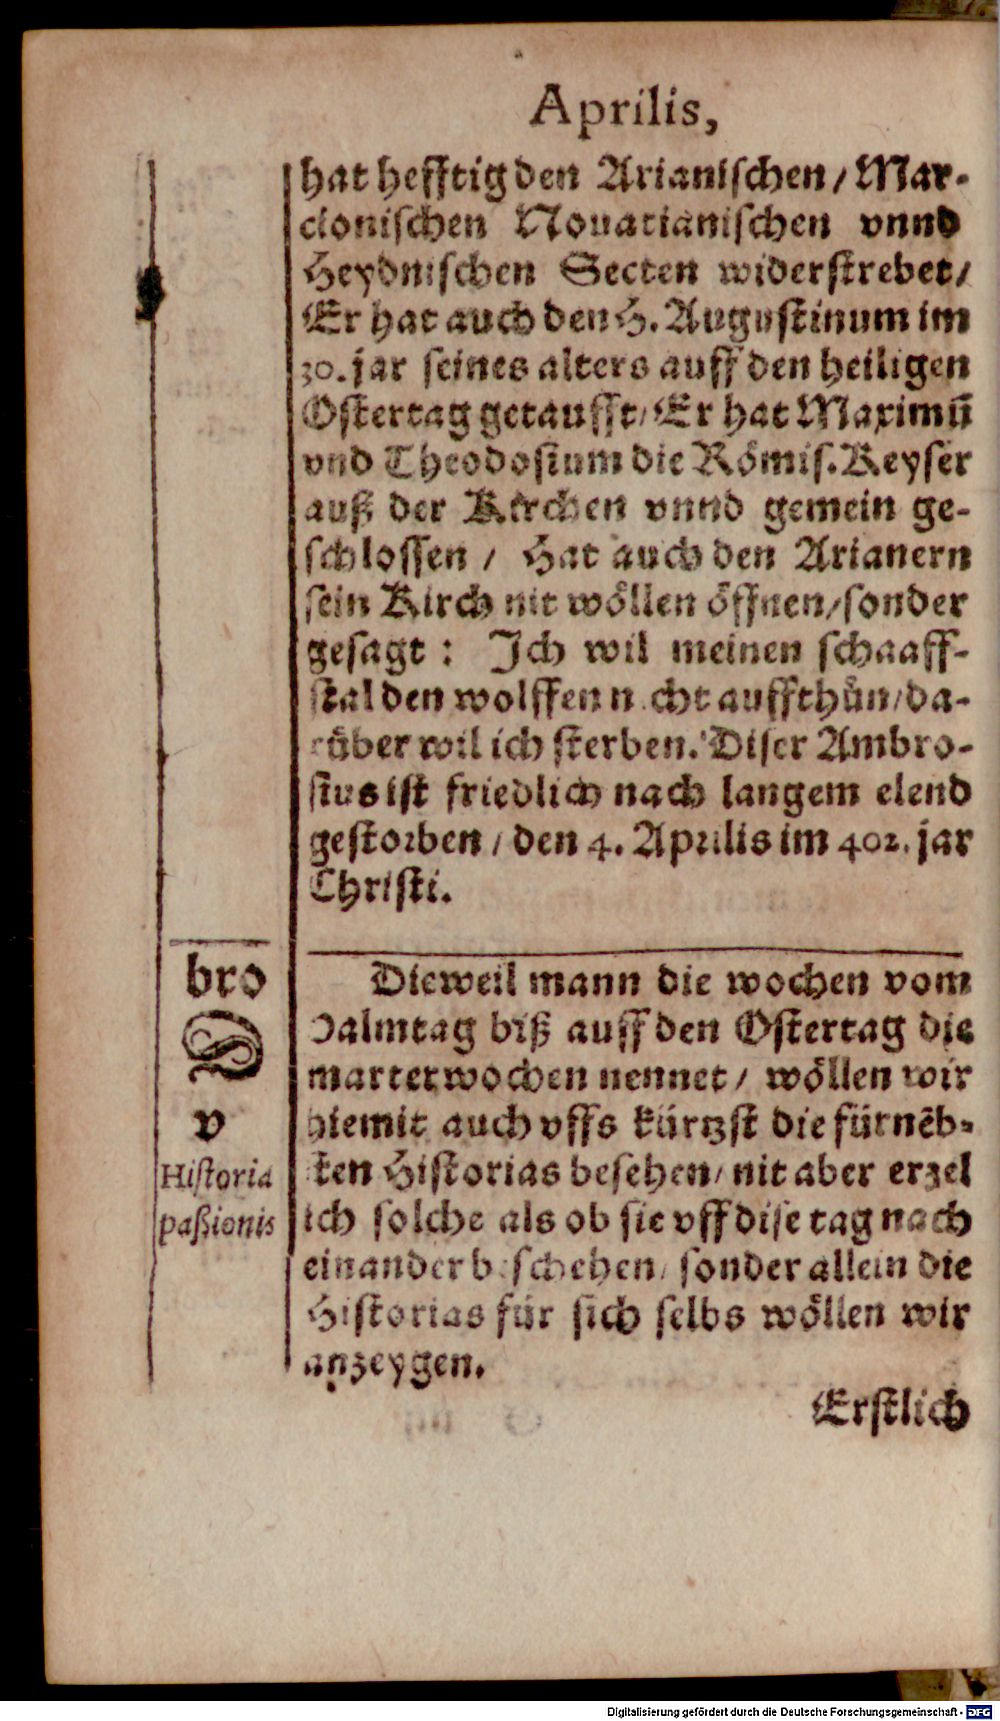 Aprilis,
hat hefftig den Arianischen / Mar-
cionischen Nouatianischen vnnd
Heydnischen Secten widerstrebet /
Er hat auch den H. Augustinum im
30. jar seines alters auff den heiligen
Ostertag getaufft / Er hat Maximū
vnd Theodosium die Römis. Keyser
auß der Kirchen vnnd gemein ge-
schlossen / Hat auch den Arianern
sein Kirch nit wöllen öffnen / sonder
gesagt : Ich wil meinen schaaff-
stal den wolffen nicht auffthůn / da-
rüber wil ich sterben. Diser Ambro-
sius ist friedlich nach langem elend
gestorben / den 4. Aprilis im 402. jar
Christi.
bro
D
v
Historia
paßionis
Dieweil mann die wochen vom
Palmtag biß auff den Ostertag die
marterwochen nennet / wöllen wir
hiemit auch vffs kürtzst die fürnēb-
sten Historias besehen / nit aber erzel
ich solche als ob sie vff dise tag nach
einander beschehen / sonder allein die
Historias für sich selbs wöllen wir
anzeygen.
Erstlich
Digitalisierung gefördert durch die Deutsche Forschungsgemeinschaft - DFG